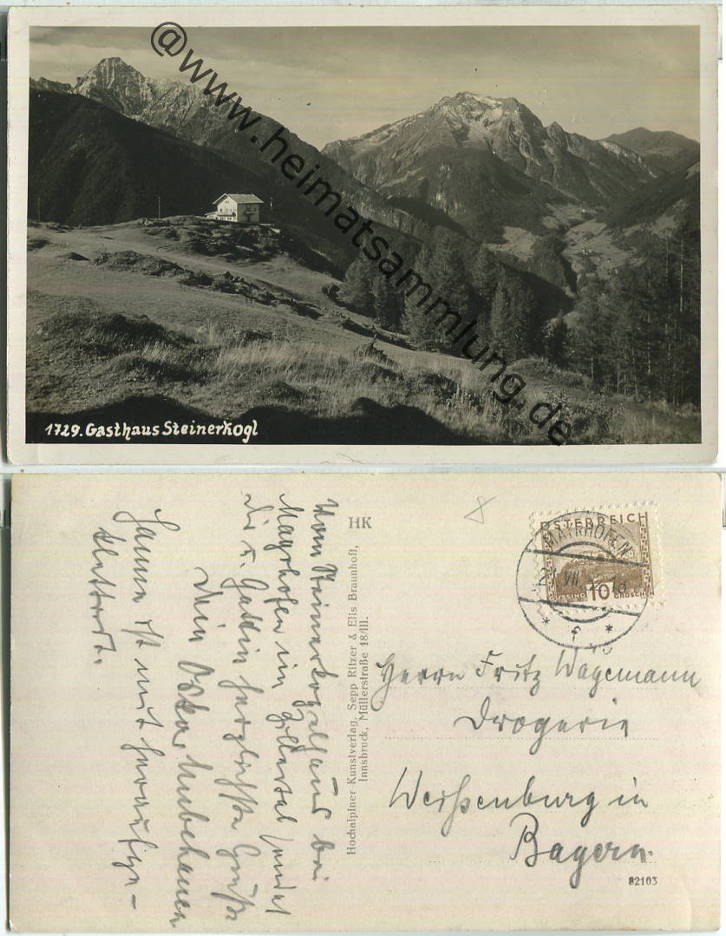 @www.heimatsammlung.de
1729. Gasthaus Steinerkogl
Vom Steinerkoglhaus bei
Mayrhofen im Zillertal sendet
Dir u. Gattin herzlichste Grüße
Dein Oskar
Hanna ist mit heraufge-
klettert.
HK
Hochalpiner Kunstverlag, Sepp Ritzer & Elis Braunhoff,
Innsbruck, Müllerstraße 18/III.
ÖSTERREICH
MAYRHOFEN
VII
10
GÜSSING GROSCHEN
Herrn Fritz Wagemann
Drogerie
Weißenburg in
Bayern.
82103